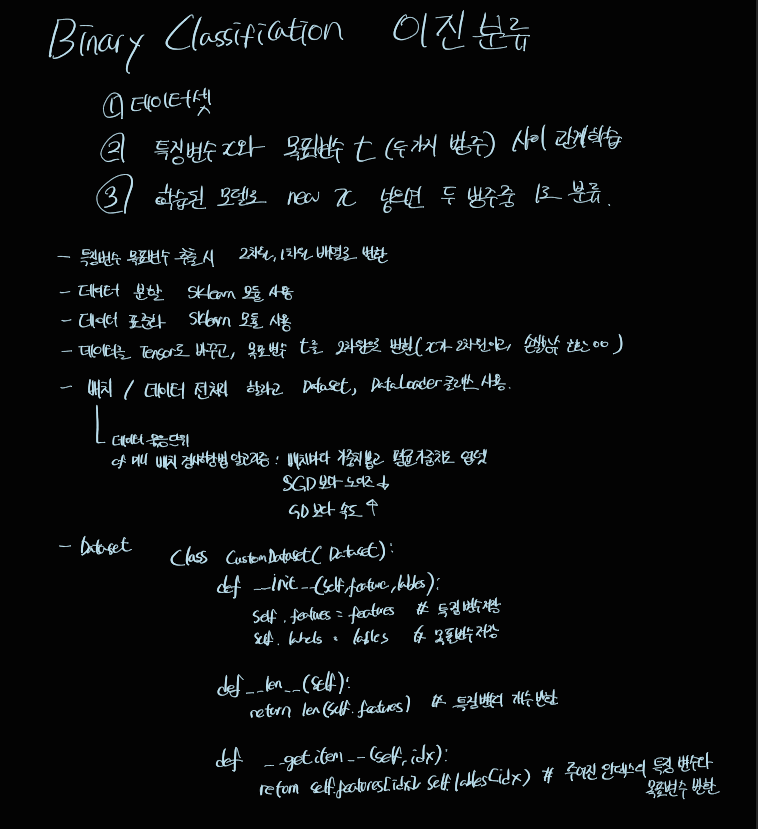 Binary Classification 이진 분류
① 데이터셋
② 특징변수 x와 목표변수 t (두가지 범주) 사이 관계학습
③ 학습된 모델로 new x 넣으면 두 범주중 1로 분류.
- 특징변수 목표변수 추출시 2차원, 1차원 배열로 변환
- 데이터 분할 Sklearn 모듈 사용
- 데이터 표준화 Sklearn 모듈 사용
- 데이터를 Tensor로 바꾸고, 목표변수 t를 2차원으로 변환(x가 2차원이고, 손실함수)
- 배치 / 데이터 전처리 할라고 Dataset, DataLoader 클래스 사용.
데이터 묶음단위
미니 배치 경사하강법 알고리즘 : 배치마다 가중치 평균가중치로 업뎃
SGD보다 노이즈↓
GD보다 속도↑
- Dataset Class CustomDataset(Dataset):
def __init__(self,feature,lables):
self.features = features # 특징변수저장
self.labels = lables # 목표변수저장
def __len__(self):
return len(self.features) # 특징변수 개수반환
def __getitem__(self,idx):
return self.features[idx], self.lables[idx] # 주어진 인덱스의 특징 변수와
목표변수 반환